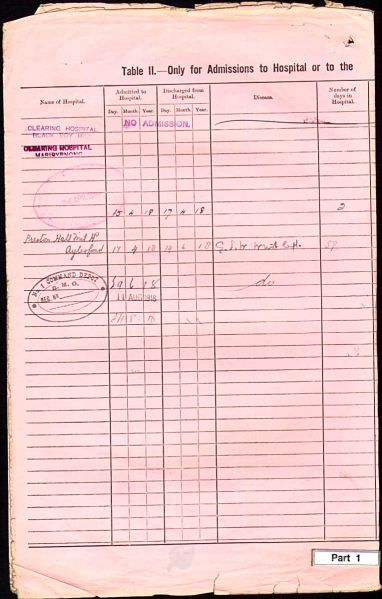 Table II.—Only for Admissions to Hospital or to the
Name of Hospital.
Admitted to Hospital.
Discharged from Hospital.
Disease.
Number of days in Hospital.
Day. Month. Year. Day. Month. Year.
CLEARING HOSPITAL NO ADMISSION.
BLACK BOY HILL
CLEARING HOSPITAL
MARIBYRNONG
15 4 18 17 4 18 2
Preston Hall Mil. H
Aylesford 17 4 18 14 6 18 G.S.W. 59
No 1 COMMAND DEPOT
6 18 do
AUG 1918
Part 1